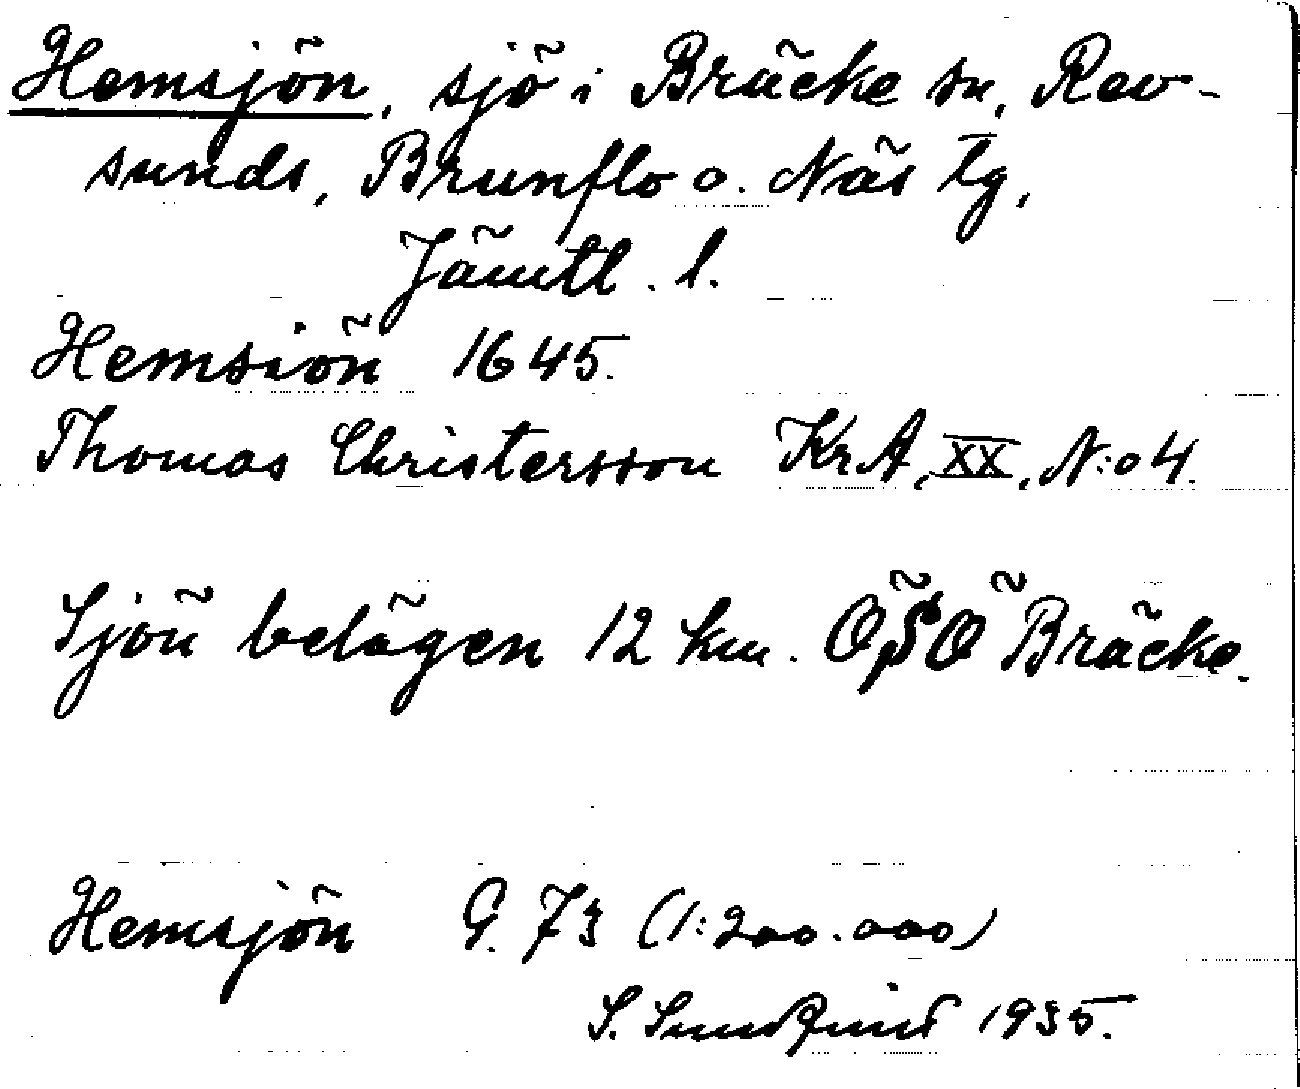 Hemsjön, sjö i Bräcke sn, Rev-
sunds, Brunflo o. Näs tg,
Jämtl. l.
Hemsiön 1645.
Thomas Christersson KrA, XX, N:o 4.
Sjön belägen 12 km. ÖSÖ Bräcke.
Hemsjön G. 73 (1:200.000)
S. Sundquist 1935.